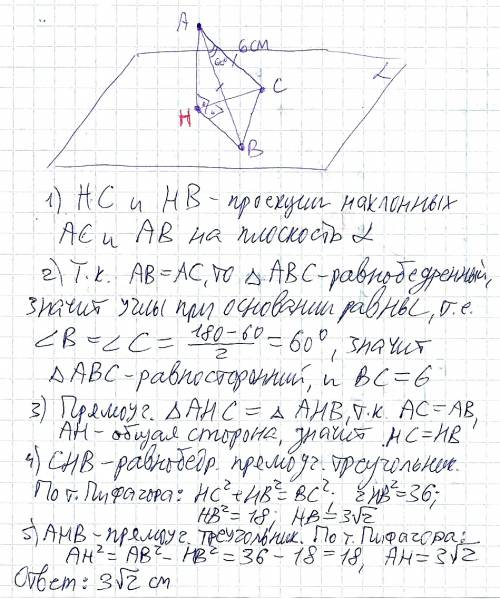 A
60°
6см
C
H
B
α
1) HC и HB - проекции наклонных
AC и AB на плоскость α
2) Т.к. AB=AC, то △ABC-равнобедренный,
значит углы при основании равны, т.е.
∠B=∠C= (180-60)/2 =60°, значит
△ABC-равносторонний, и BC=6
3) Прямоуг. △AHC = △AHB, т.к. AC=AB,
AH-общая сторона, значит HC=HB
4) CHB-равнобедр. прямоуг. треугольник.
По т. Пифагора: HC²+HB²=BC²; 2HB²=36;
HB²=18; HB=3√2
5) AHB-прямоуг. треугольник. По т. Пифагора:
AH²=AB²-HB²=36-18=18, AH=3√2
Ответ: 3√2 см